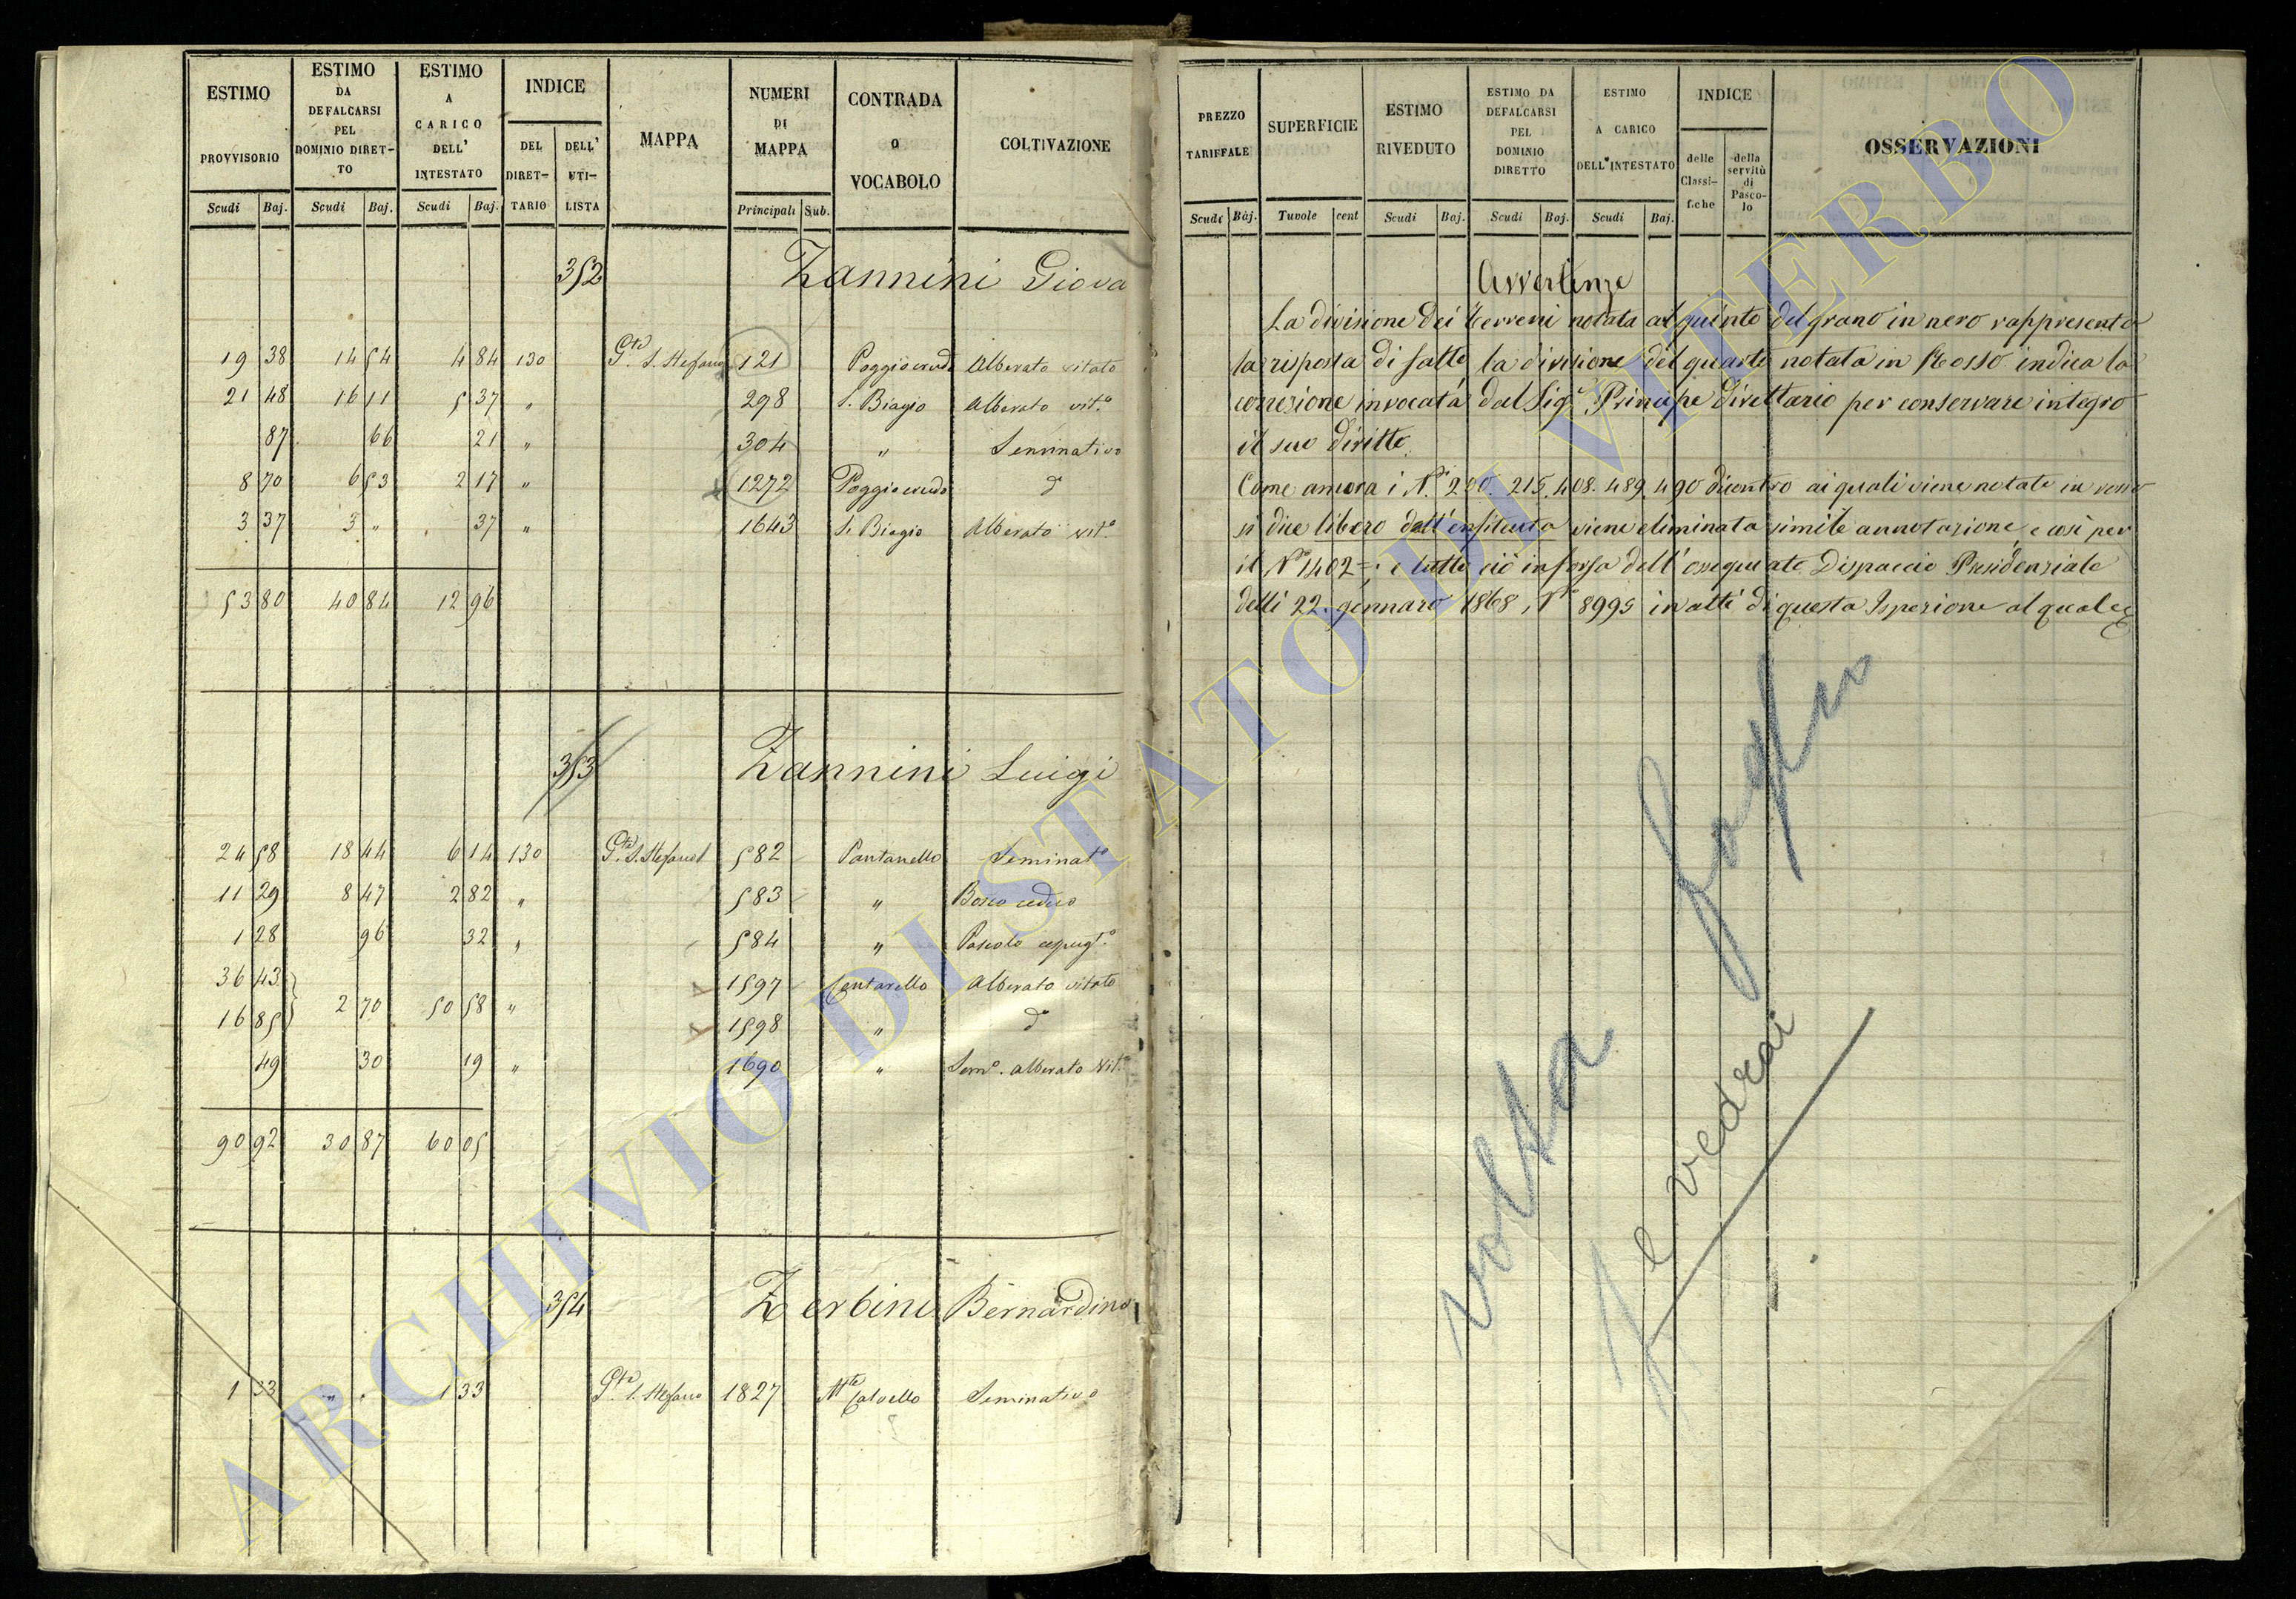 ESTIMO PROVVISORIO Scudi Baj.
ESTIMO DA DEFALCARSI PEL DOMINIO DIRET-TO Scudi Baj.
ESTIMO A CARICO DELL' INTESTATO Scudi Baj.
INDICE DEL DIRET-TARIO DELL' UTI-LISTA
MAPPA
NUMERI DI MAPPA Principali Sub.
CONTRADA O VOCABOLO
COLTIVAZIONE
352 Zannini Giova
19 38 14 54 4 84 130 P.te S. Stefano 121 Poggio Alberato vitato
21 48 16 11 5 37 " 298 S. Biagio Alberato vit.o
87 66 21 " 304 " Seminativo
8 70 6 53 2 17 " 1272 Poggio d.o
3 37 3 " 37 " 1643 S. Biagio Alberato vit.o
53 80 40 84 12 96
353 Zannini Luigi
24 58 18 44 6 14 130 P.te S. Stefano 582 Pantanello Seminat.o
11 29 8 47 2 82 " 583 " Bosco ceduo
1 28 96 32 " 584 " Pascolo
36 43 1597 Alberato vitato
2 70 50 58 "
16 85 1598 " d.o
49 30 19 " 1690 " Sem.o alberato vit.o
90 92 30 87 60 05
354 Zerbini Bernardino
1 33 " " 1 33 P.te S. Stefano 1827 M.te Calvello Seminativo
PREZZO TARIFFALE Scudi Baj.
SUPERFICIE Tavole cent
ESTIMO RIVEDUTO Scudi Baj.
ESTIMO DA DEFALCARSI PEL DOMINIO DIRETTO Scudi Baj.
ESTIMO A CARICO DELL'INTESTATO Scudi Baj.
INDICE delle Classi-fiche della servitù di Pasco-lo
OSSERVAZIONI
Avvertenze
La divisione dei Terreni notata al quinto del grano in nero rappresenta
la risposta di fatto la divisione del quarto notata in Rosso indica la
correzione invocata dal Sig.r Principe Direttario per conservare integro
il suo diritto.
Come ancora i N.i 200. 215. 408. 489. 490 dicontro ai quali viene notato in rosso
si dice libero dall'enfiteusi viene eliminata simile annotazione, e così per
il N.o 1402 =; e tutto ciò in forza dell'ossequiato Dispaccio Presidenziale
delli 22. gennaro 1868. N.o 8995 in atti di questa Ispezione al quale
volta foglio
e vedrai
ARCHIVIO DI STATO DI VITERBO